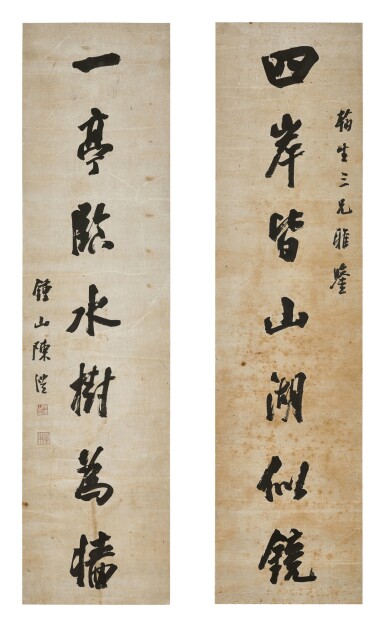 翰生三兄雅鑒
四岸皆山湖似鏡
一亭臨水樹為牆
鍾山陳澧